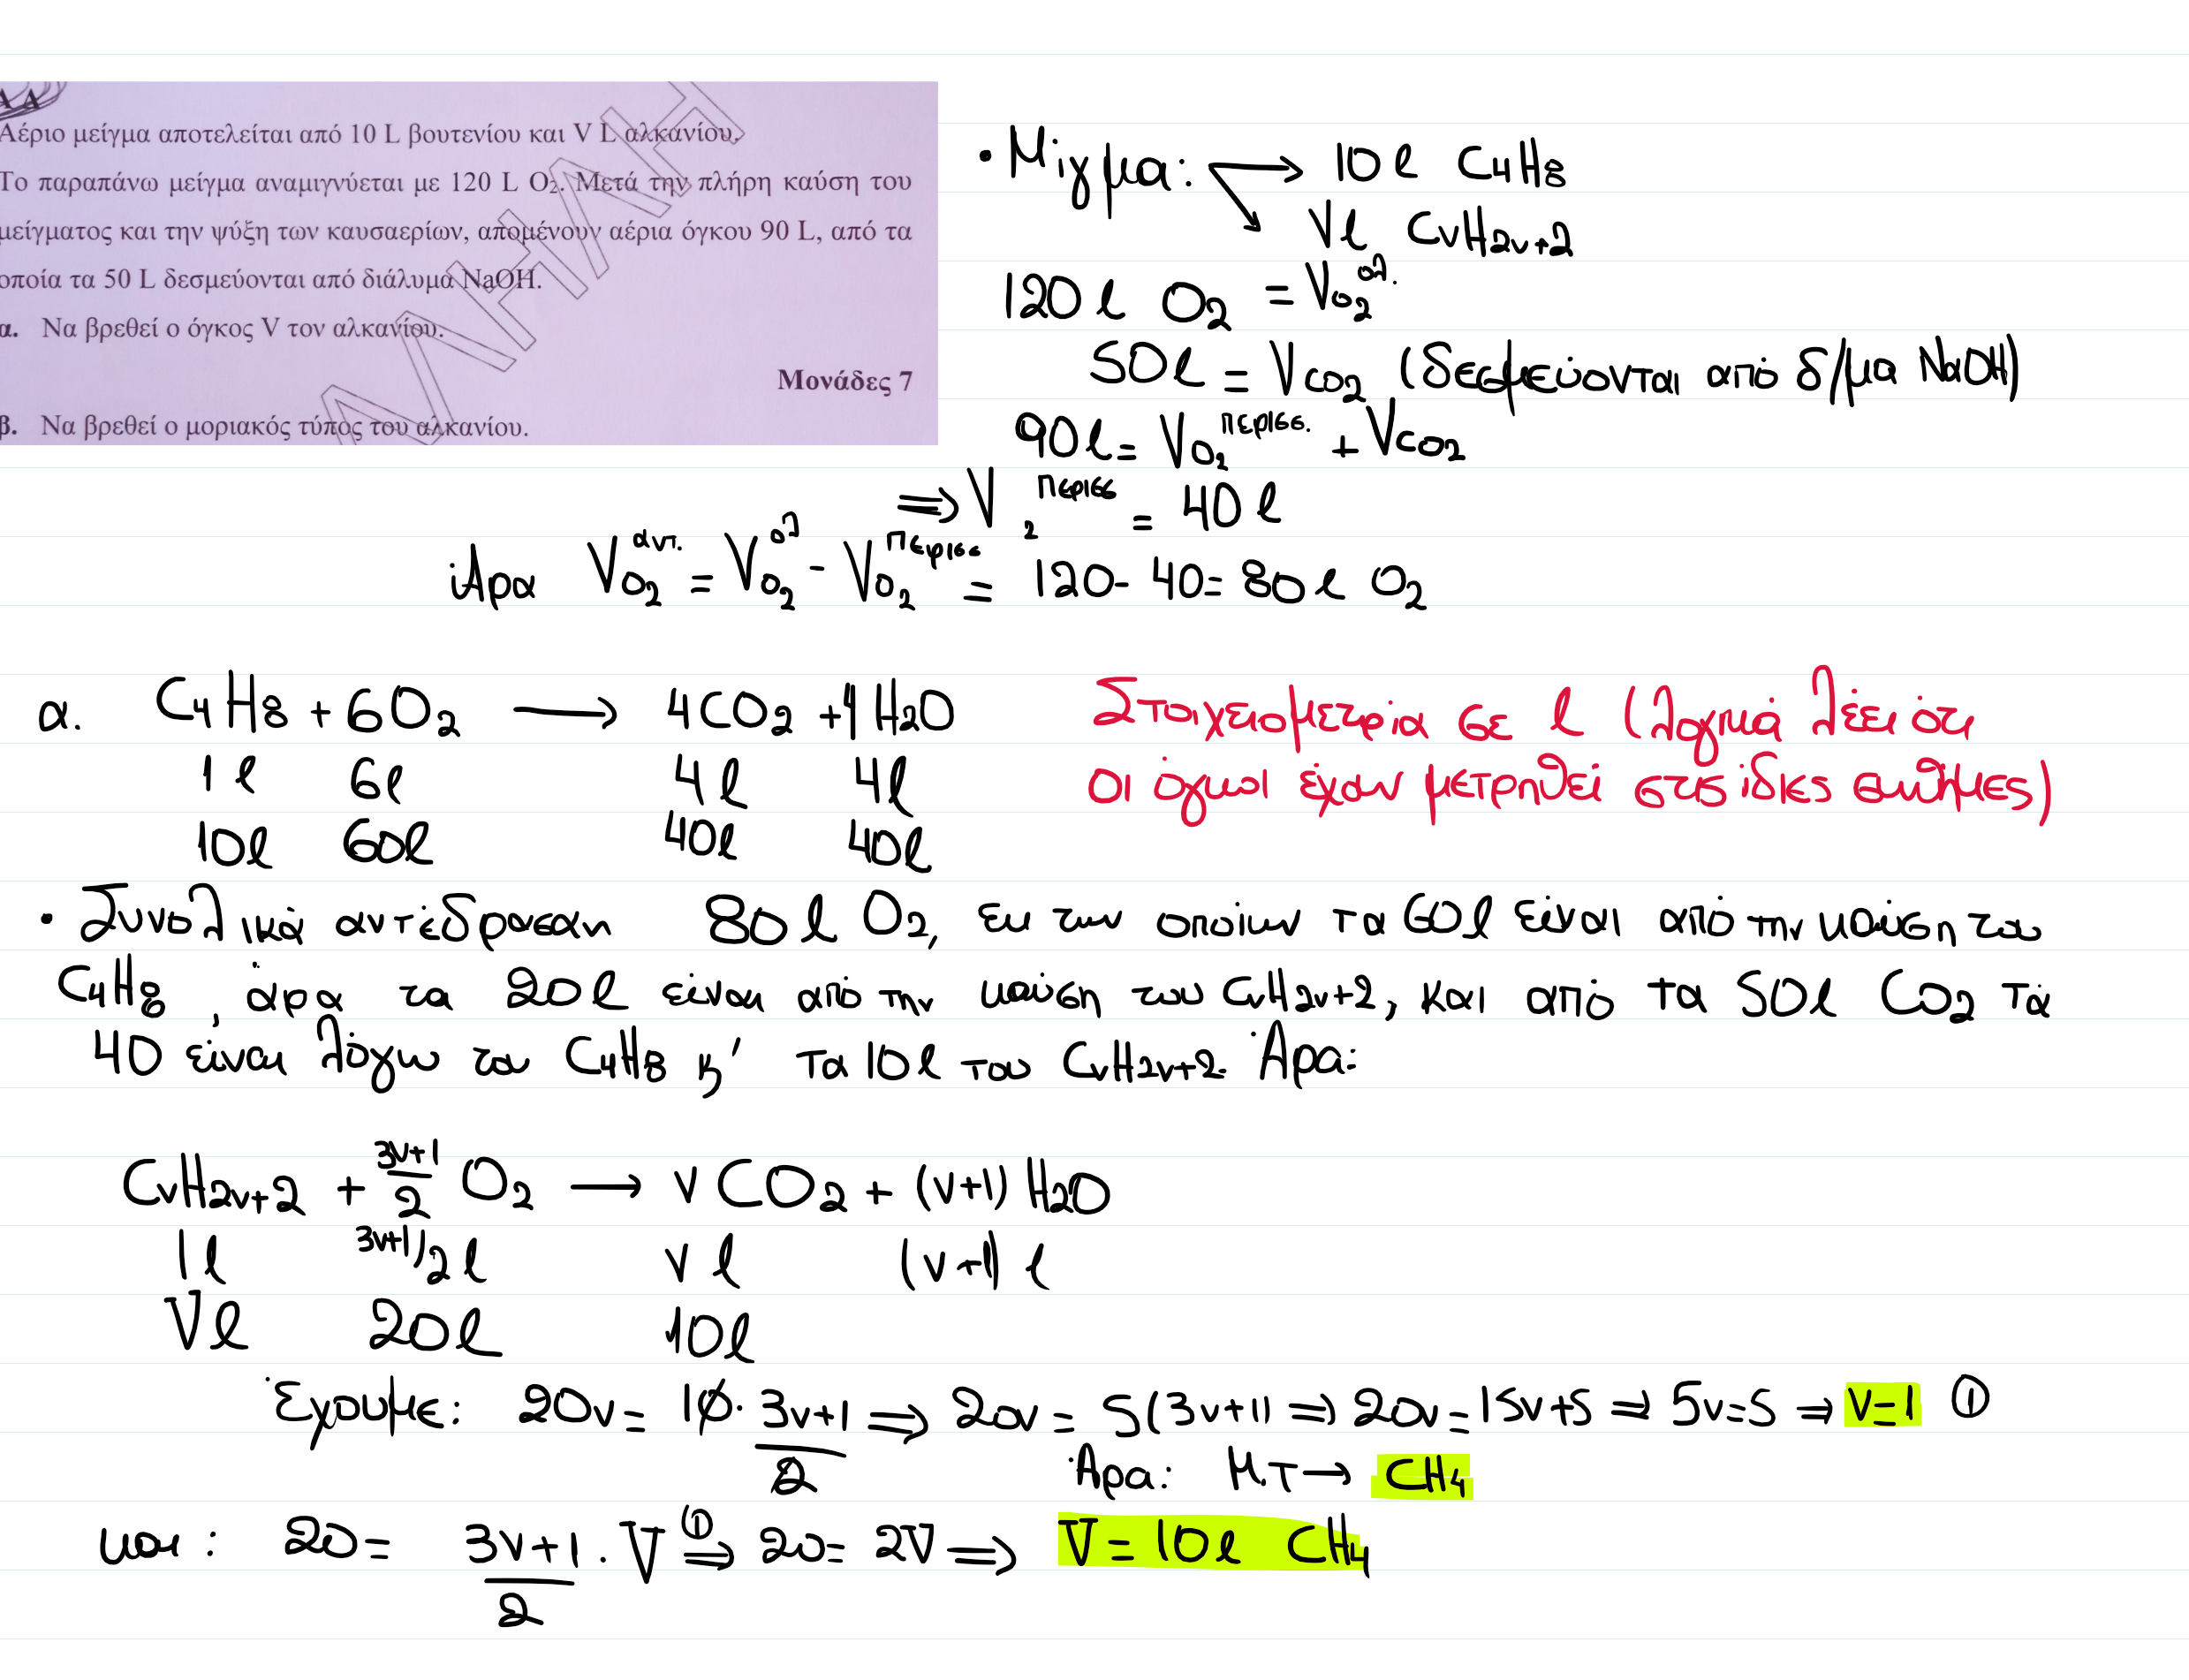 Αέριο μείγμα αποτελείται από 10 L βουτενίου και V L αλκανίου.
Το παραπάνω μείγμα αναμιγνύεται με 120 L O₂. Μετά την πλήρη καύση του
μείγματος και την ψύξη των καυσαερίων, απομένουν αέρια όγκου 90 L, από τα
οποία τα 50 L δεσμεύονται από διάλυμα NaOH.
α. Να βρεθεί ο όγκος V τον αλκανίου.
Μονάδες 7
β. Να βρεθεί ο μοριακός τύπος του αλκανίου.
• Μίγμα: → 10 l C4H8
Vl CνH2ν+2
120 l O2 = VO2 ολ.
50l = VCO2 (δεσμεύονται από δ/μα NaOH)
90l = VO2 περισσ. + VCO2
⇒ V 2 περισσ = 40 l
Άρα VO2 αντ. = VO2 ολ - VO2 περισσ = 120 - 40 = 80 l O2
α. C4H8 + 6O2 → 4CO2 + 4H2O
1 l 6l 4l 4l
10l 60l 40l 40l
Στοιχειομετρία σε l (λογικά λέει ότι
οι όγκοι έχουν μετρηθεί στις ίδιες συνθήκες)
• Συνολικά αντέδρασαν 80 l O2, εκ των οποίων τα 60l είναι από την καύση του
C4H8, άρα τα 20l είναι από την καύση του CνH2ν+2, και από τα 50l CO2 τα
40 είναι λόγω του C4H8 κ' τα 10l του CνH2ν+2. Άρα:
CνH2ν+2 + 3ν+1/2 O2 → ν CO2 + (ν+1) H2O
1l 3ν+1/2 l ν l (ν+1) l
Vl 20l 10l
Έχουμε: 20ν = 10 · 3ν+1/2 ⇒ 20ν = 5(3ν+1) ⇒ 20ν = 15ν+5 ⇒ 5ν=5 ⇒ ν=1 ①
Άρα: Μ.Τ → CH4
και: 20 = 3ν+1/2 · V ①⇒ 20 = 2V ⇒ V = 10l CH4